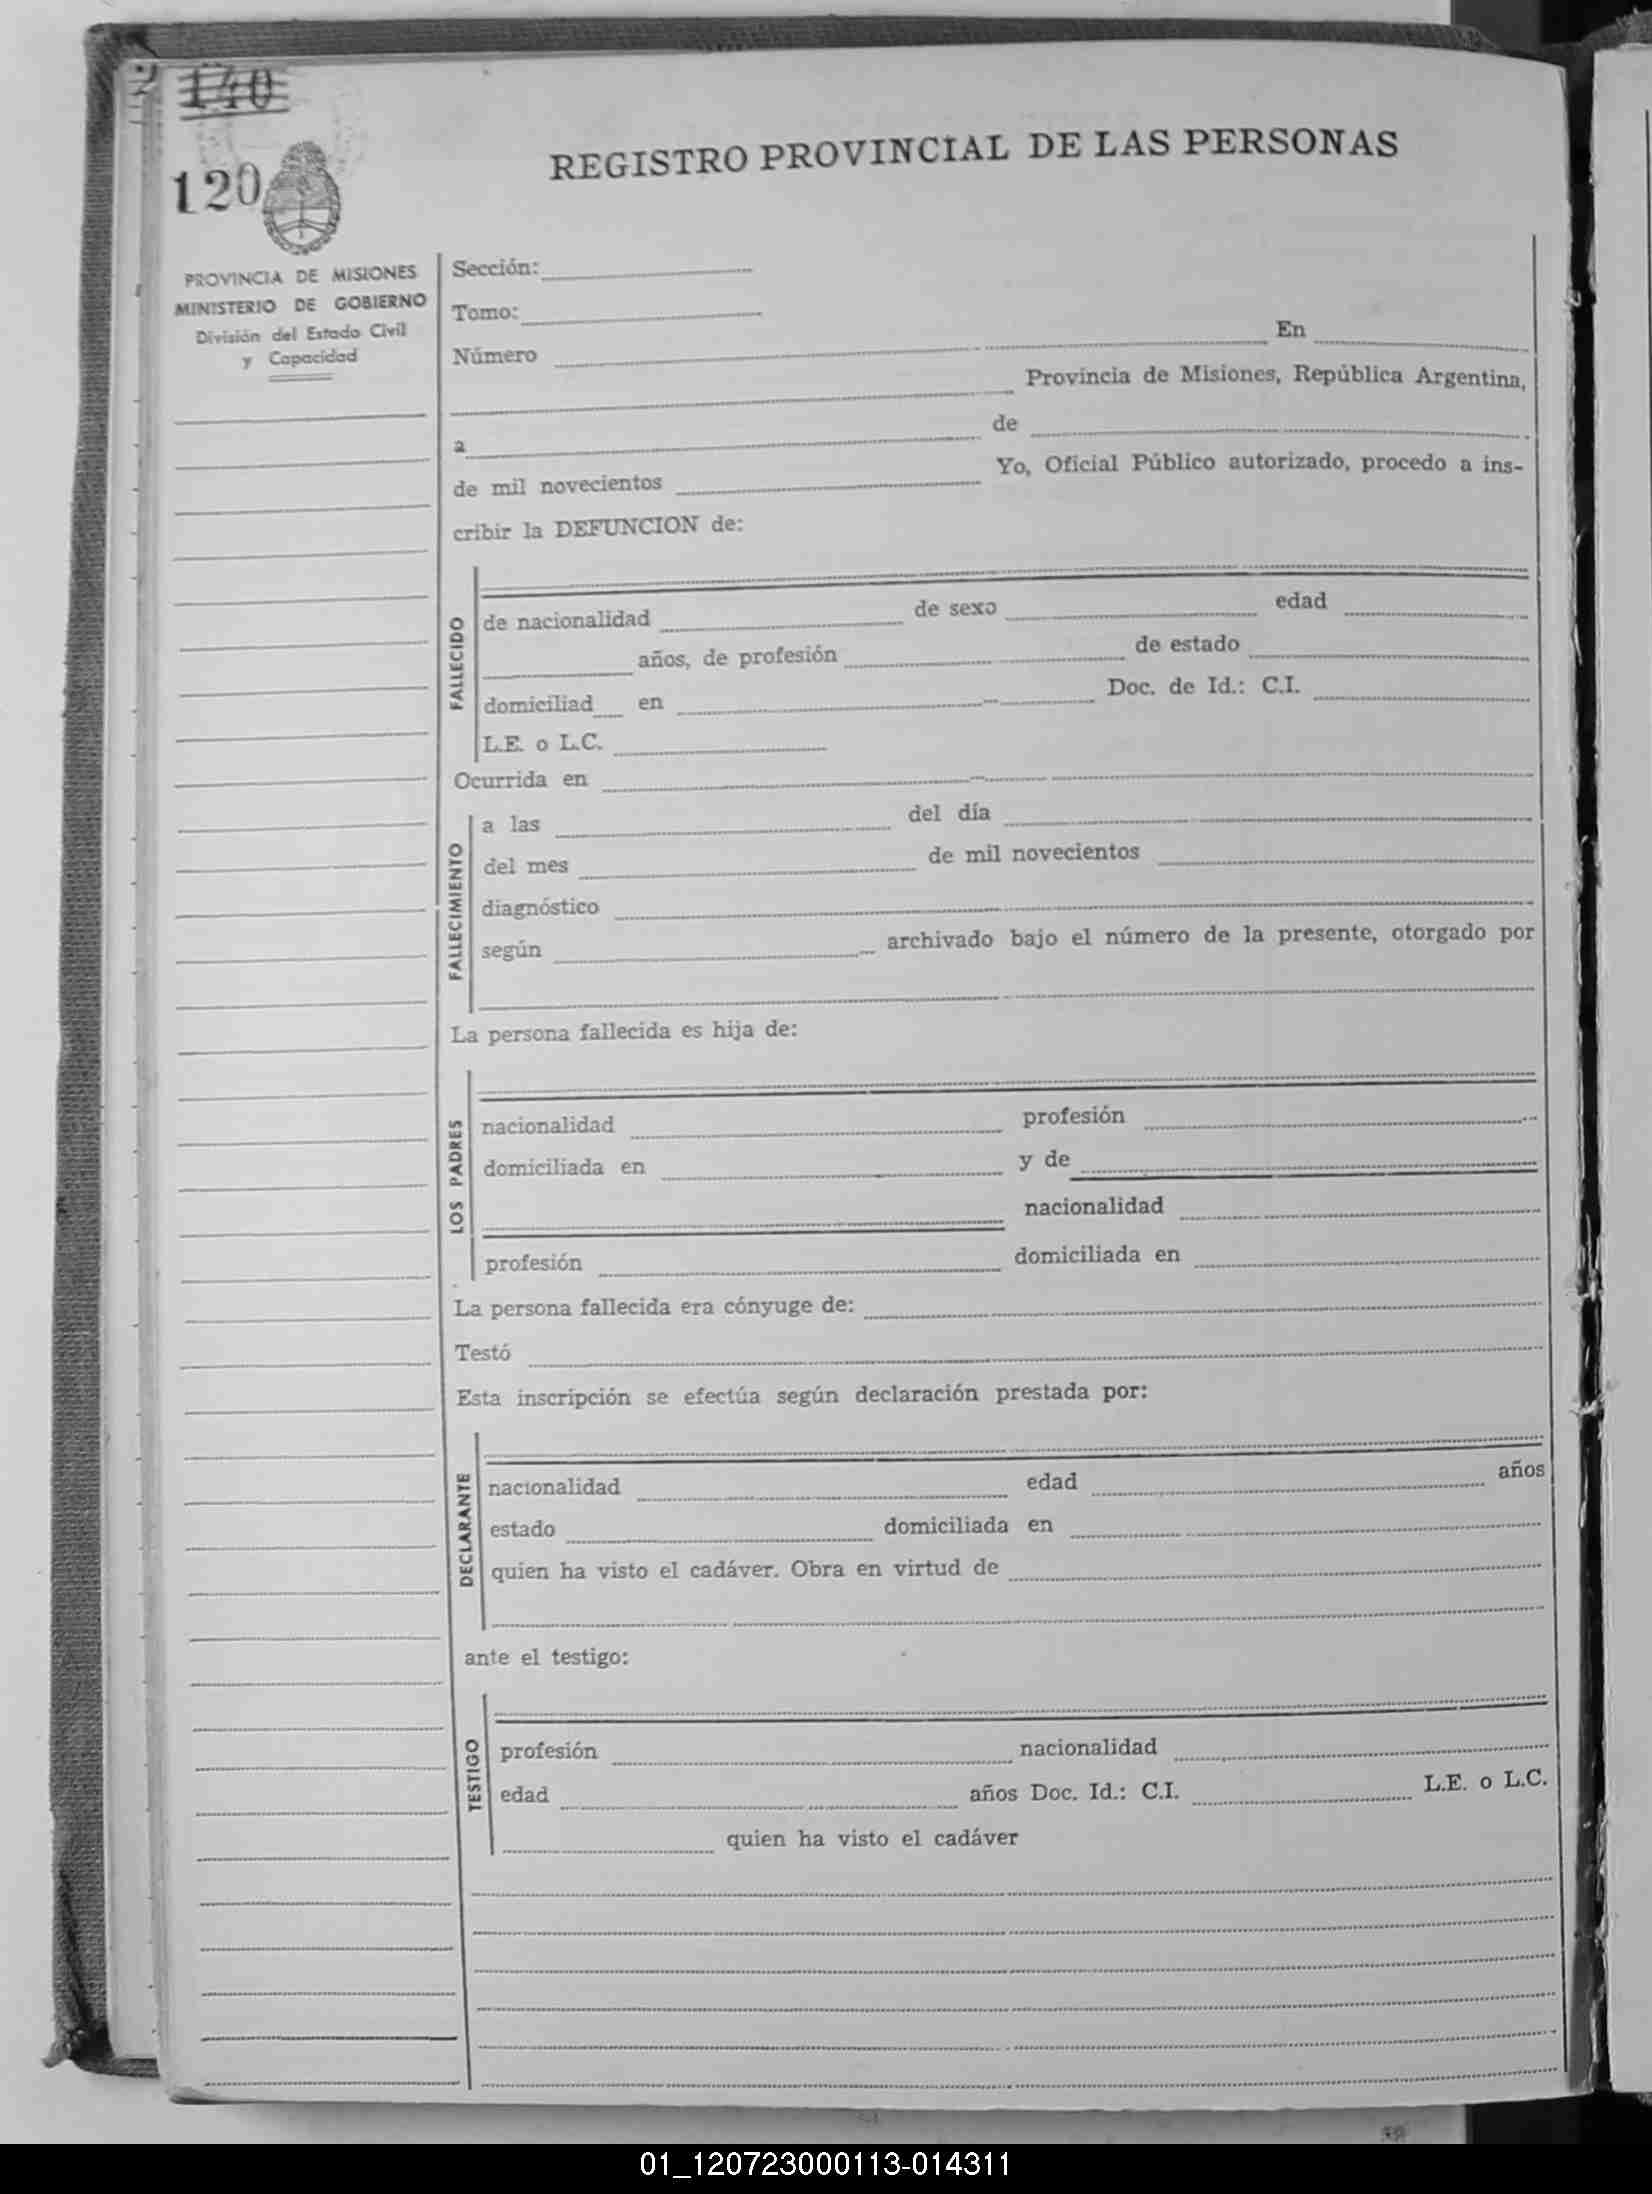 140
120
REGISTRO PROVINCIAL DE LAS PERSONAS
PROVINCIA DE MISIONES
MINISTERIO DE GOBIERNO
División del Estado Civil
y Capacidad
Sección:
Tomo:
Número En
Provincia de Misiones, República Argentina,
a de
de mil novecientos Yo, Oficial Público autorizado, procedo a ins-
cribir la DEFUNCION de:
FALLECIDO
de nacionalidad de sexo edad
años, de profesión de estado
domiciliad en Doc. de Id.: C.I.
L.E. o L.C.
Ocurrida en
FALLECIMIENTO
a las del día
del mes de mil novecientos
diagnóstico
según archivado bajo el número de la presente, otorgado por
La persona fallecida es hija de:
LOS PADRES
nacionalidad profesión
domiciliada en y de
nacionalidad
profesión domiciliada en
La persona fallecida era cónyuge de:
Testó
Esta inscripción se efectúa según declaración prestada por:
DECLARANTE
nacionalidad edad años
estado domiciliada en
quien ha visto el cadáver. Obra en virtud de
ante el testigo:
TESTIGO
profesión nacionalidad
edad años Doc. Id.: C.I. L.E. o L.C.
quien ha visto el cadáver
01_120723000113-014311